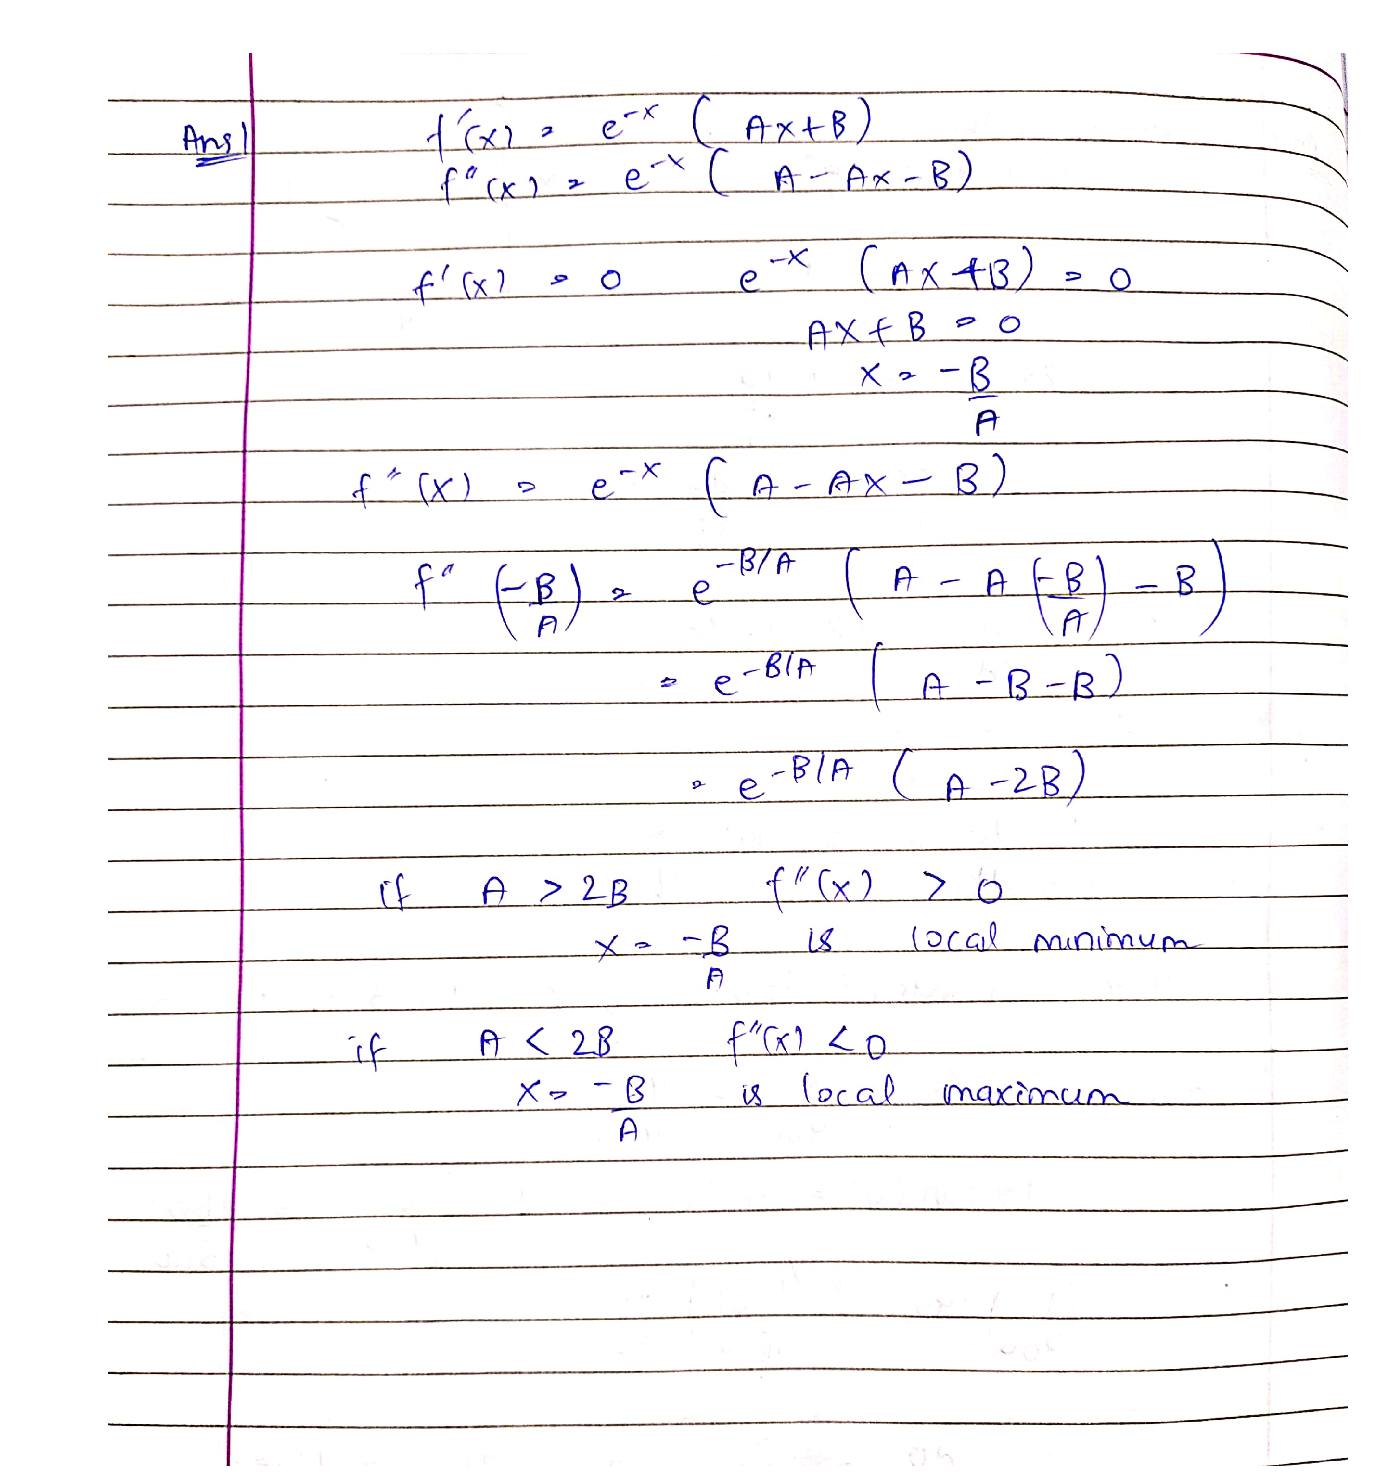 Ans1 f'(x) = e^{-x} (Ax+B)
f''(x) = e^{-x} (A - Ax - B)
f'(x) = 0 e^{-x} (Ax+B) = 0
Ax+B = 0
x = -B/A
f''(x) = e^{-x} (A - Ax - B)
f''(-B/A) = e^{-B/A} (A - A(-B/A) - B)
= e^{-B/A} (A - B - B)
= e^{-B/A} (A - 2B)
if A > 2B f''(x) > 0
x = -B/A is local minimum
if A < 2B f''(x) < 0
x = -B/A is local maximum